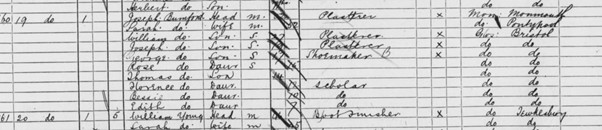 Herbert do Son do do
60 19 do 1 Joseph Bumford Head m Plasterer x Mon Monmouth
Sarah do Wife m do Pontypool
William do Son S Plasterer x Glos Bristol
Joseph do Son S Plasterer x do do
George do Son S Shoemaker x do do
Rose do Daur S do do
Thomas do Son do do
Florence do Daur Scholar do do
Bessie do Daur do do do
Edith do Daur do do do
61 20 do 1 5 William Young Head m Boot Finisher x do Tewkesbury
Sarah do Wife m do do